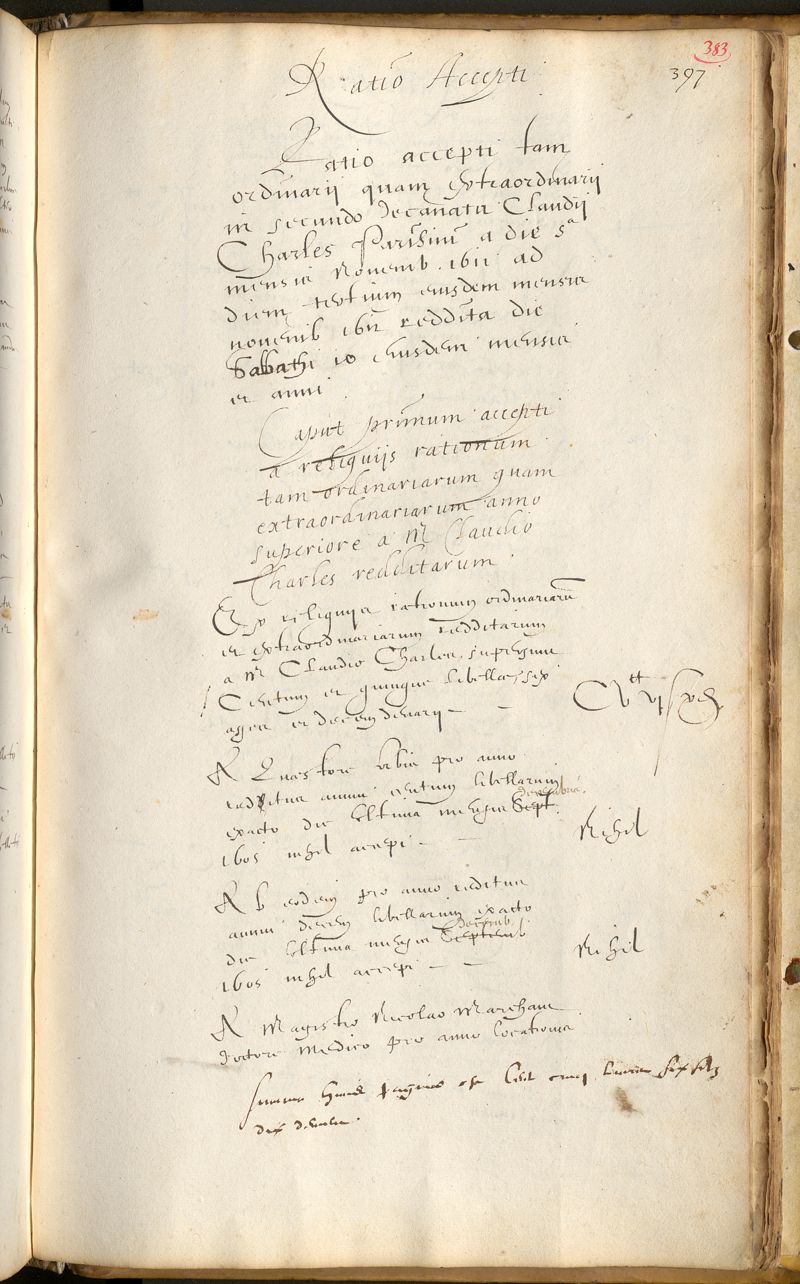 383
397
Ratio Accepti
Ratio accepti tam
ordinarij quam extraordinarij
in secundo decanatu Claudij
Charles Parisini a die 5ª
mensis Novemb. 1611 ad
diem tertium eiusdem mensis
novemb 1612 reddita die
Sabbathi 10 eiusdem mensis
et anni
Caput primum accepti
a reliquijs rationum
tam ordinariarum quam
extraordinariarum anno
superiore a M Claudio
Charles redditarum
Ex reliquijs rationum ordinariarũ
et extraordinariarum redditarum
a M Claudio Charles, supersunt
Centum et quinque libellae, sex
asses et decem denarij —
Cvtt vjs xd
A Quaestore Urbis pro anno
redditus annui centum libellarum
decembris
exacto die ultima mensis Sept.
1605 nihil accepi —
Nihil
Ab eodem pro anno reditus
annui decem libellarum exacto
decemb
die ultima mensis Septemb
1605 nihil accepi —
Nihil
A Magistro Nicolao Marchant
doctore medico pro anno locationis
Summa huius paginae est cinq livres six solz
dix deniers.